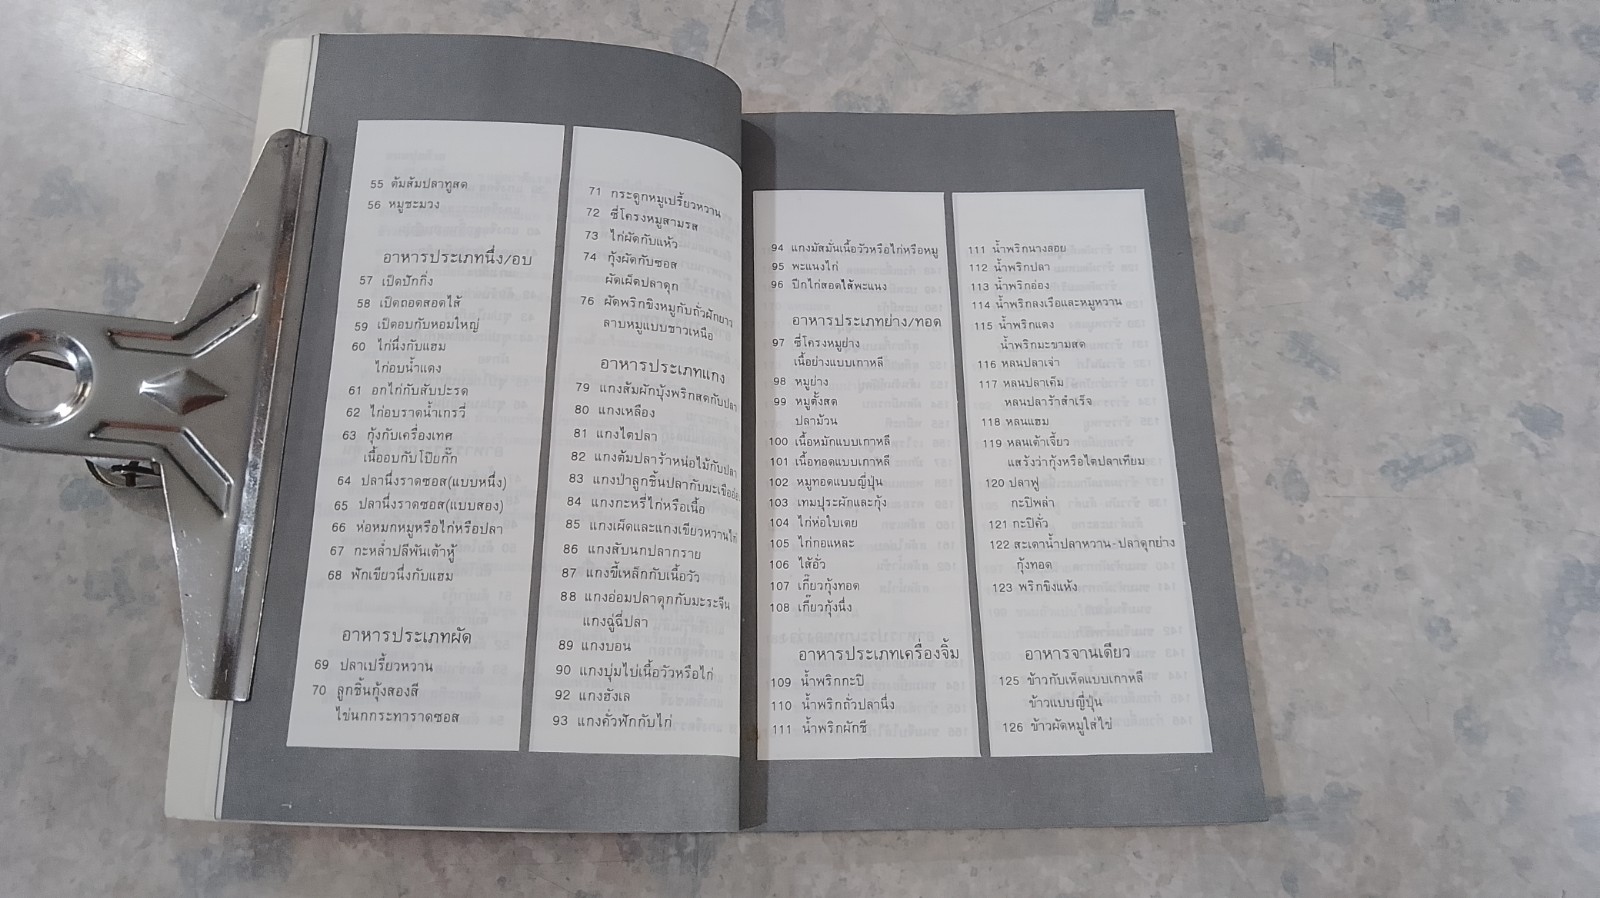 55 ต้มส้มปลาทูสด
56 หมูชะมวง
อาหารประเภทนึ่ง/อบ
57 เป็ดปักกิ่ง
58 เป็ดถอดสอดไส้
59 เป็ดอบกับหอมใหญ่
60 ไก่นึ่งกับแฮม
ไก่อบน้ำแดง
61 อกไก่กับสับปะรด
62 ไก่อบราดน้ำเกรวี่
63 กุ้งกับเครื่องเทศ
เนื้ออบกับโป๊ยกั๊ก
64 ปลานึ่งราดซอส(แบบหนึ่ง)
65 ปลานึ่งราดซอส(แบบสอง)
66 ห่อหมกหมูหรือไก่หรือปลา
67 กะหล่ำปลีพันเต้าหู้
68 ฟักเขียวนึ่งกับแฮม
อาหารประเภทผัด
69 ปลาเปรี้ยวหวาน
70 ลูกชิ้นกุ้งสองสี
ไข่นกกระทาราดซอส
71 กระดูกหมูเปรี้ยวหวาน
72 ซี่โครงหมูสามรส
73 ไก่ผัดกับแห้ว
74 กุ้งผัดกับซอส
ผัดเผ็ดปลาดุก
76 ผัดพริกขิงหมูกับถั่วฝักยาว
ลาบหมูแบบชาวเหนือ
อาหารประเภทแกง
79 แกงส้มผักบุ้งพริกสดกับปลา
80 แกงเหลือง
81 แกงไตปลา
82 แกงต้มปลาร้าหน่อไม้กับปลา
83 แกงป่าลูกชิ้นปลากับมะเขืออ่อน
84 แกงกะหรี่ไก่หรือเนื้อ
85 แกงเผ็ดและแกงเขียวหวานไก่
86 แกงสับนกปลากราย
87 แกงขี้เหล็กกับเนื้อวัว
88 แกงอ่อมปลาดุกกับมะระจีน
แกงฉู่ฉี่ปลา
89 แกงบอน
90 แกงบุ่มไบ่เนื้อวัวหรือไก่
92 แกงฮังเล
93 แกงคั่วฟักกับไก่
94 แกงมัสมั่นเนื้อวัวหรือไก่หรือหมู
95 พะแนงไก่
96 ปีกไก่สอดไส้พะแนง
อาหารประเภทย่าง/ทอด
97 ซี่โครงหมูย่าง
เนื้อย่างแบบเกาหลี
98 หมูย่าง
99 หมูตั้งสด
ปลาม้วน
100 เนื้อหมักแบบเกาหลี
101 เนื้อทอดแบบเกาหลี
102 หมูทอดแบบญี่ปุ่น
103 เทมปุระผักและกุ้ง
104 ไก่ห่อใบเตย
105 ไก่กอแหละ
106 ไส้อั่ว
107 เกี๊ยวกุ้งทอด
108 เกี๊ยวกุ้งนึ่ง
อาหารประเภทเครื่องจิ้ม
109 น้ำพริกกะปิ
110 น้ำพริกถั่วปลานึ่ง
111 น้ำพริกผักชี
111 น้ำพริกนางลอย
112 น้ำพริกปลา
113 น้ำพริกอ่อง
114 น้ำพริกลงเรือและหมูหวาน
115 น้ำพริกแดง
น้ำพริกมะขามสด
116 หลนปลาเจ่า
117 หลนปลาเค็ม
หลนปลาร้าสำเร็จ
118 หลนแฮม
119 หลนเต้าเจี้ยว
แสร้งว่ากุ้งหรือไตปลาเทียม
120 ปลาฟู
กะปิพล่า
121 กะปิคั่ว
122 สะเดาน้ำปลาหวาน-ปลาดุกย่าง
กุ้งทอด
123 พริกขิงแห้ง
อาหารจานเดียว
125 ข้าวกับเห็ดแบบเกาหลี
ข้าวแบบญี่ปุ่น
126 ข้าวผัดหมูใส่ไข่